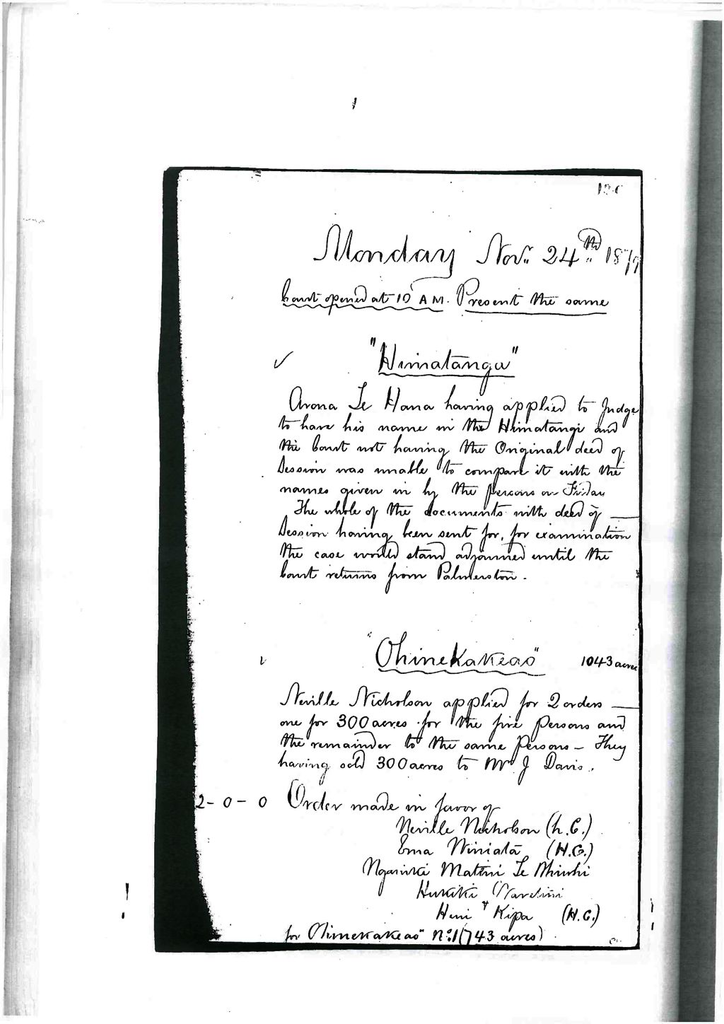 Monday Novr. 24th 1879
Court opened at 10 A.M. Present the same
"Himatanga"
Arona Te Hana having applied to Judge
to have his name in the Himatangi and
the Court not having the Original deed of
Session was unable to compare it with the
names given in by the persons on Friday
The whole of the documents with deed of
Session having been sent for, for examination
the case would stand adjourned until the
Court returns from Palmerston.
"Ohinekakeao" 1043 acres
Neville Nicholson applied for 2 orders
one for 300 acres for the five Persons and
the remainder to the same Persons – They
having sold 300 acres to Mr J Davis.
2-0-0 Order made in favor of
Neville Nicholson (h.C.)
Ema Winiata (H.C.)
Matini Te
Hini Kipa (H.C.)
for Ohinekakeao" No. 1 (743 acres)